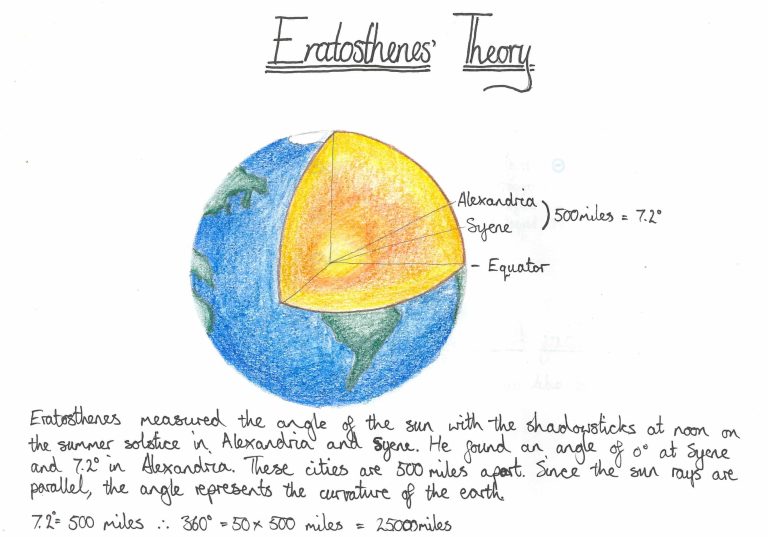 Eratosthenes' Theory
Alexandria
Syene
500 miles = 7.2°
- Equator
Eratosthenes measured the angle of the sun with the shadowsticks at noon on
the summer solstice in Alexandria and Syene. He found an angle of 0° at Syene
and 7.2° in Alexandria. These cities are 500 miles apart. Since the sun rays are
parallel, the angle represents the curvature of the earth.
7.2° = 500 miles ∴ 360° = 50 × 500 miles = 25000miles